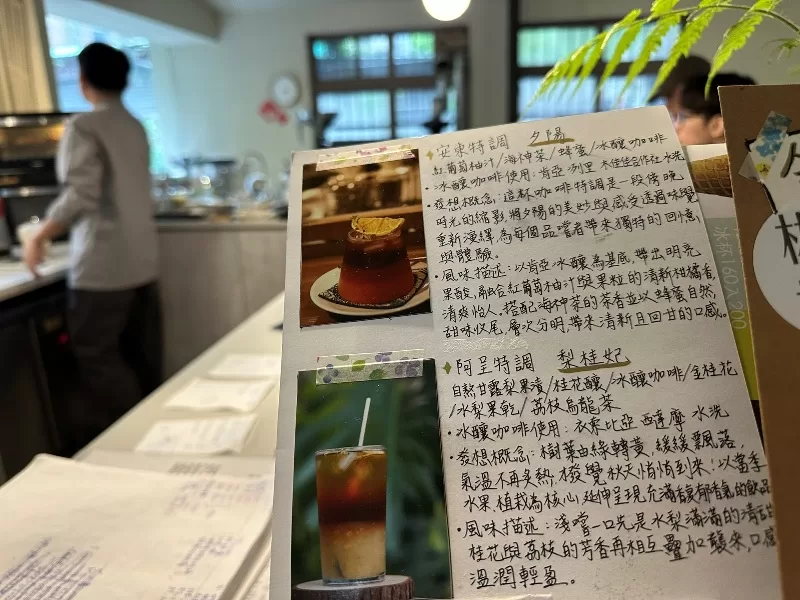 安東特調 夕陽
紅葡萄柚汁/海神茶/蜂蜜/冰釀咖啡
・冰釀咖啡使用:肯亞 冽里 水洗
・發想概念:這杯咖啡特調是一段傍晚
時光的縮影,將夕陽的美妙與感受透過味覺
重新演繹,為每個品嚐者帶來獨特的回憶
與體驗。
・風味描述:以肯亞冰釀為基底,帶出明亮
果酸,融合紅葡萄柚汁與果粒的清新柑橘香,
清爽怡人。搭配海神茶的茶香並以蜂蜜自然
甜味收尾,層次分明,帶來清新且回甘的口感。
阿呈特調 梨桂妃
自熬甘露梨果漬/桂花釀/冰釀咖啡/金桂花
/水梨果乾/荔枝烏龍茶
・冰釀咖啡使用:衣索比亞 西達摩 水洗
・發想概念:樹葉由綠轉黃,緩緩飄落,
氣溫不再炙熱,發覺秋天悄悄到來;以當季
水果植栽為核心,延伸呈現充滿馥郁香氣的飲品
・風味描述:淺嚐一口先是水梨滿滿的清甜
桂花與荔枝的芳香再相互疊加襲來,口感
溫潤輕盈。